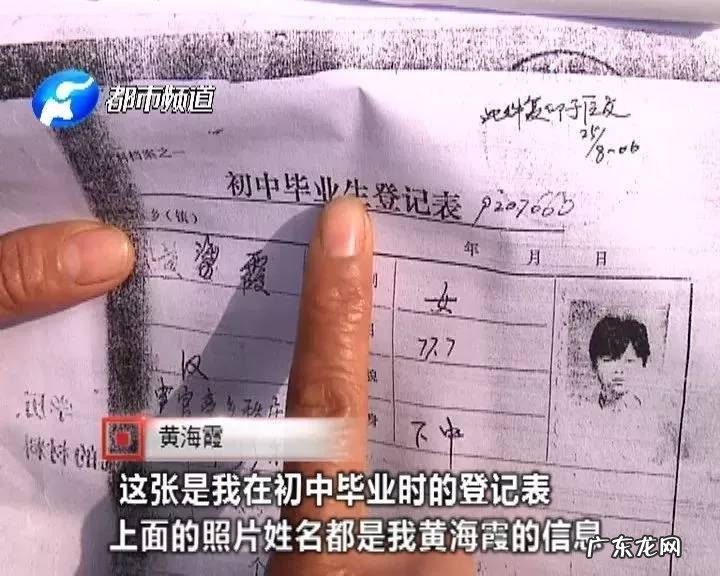 都市频道
此件复印于区交
25/8-06
档案之一
初中毕业生登记表 9207660
乡（镇）
年 月 日
黄海霞
女
77.7
汉
下中
学历
的材料
黄海霞
这张是我在初中毕业时的登记表
上面的照片姓名都是我黄海霞的信息
广东龙网